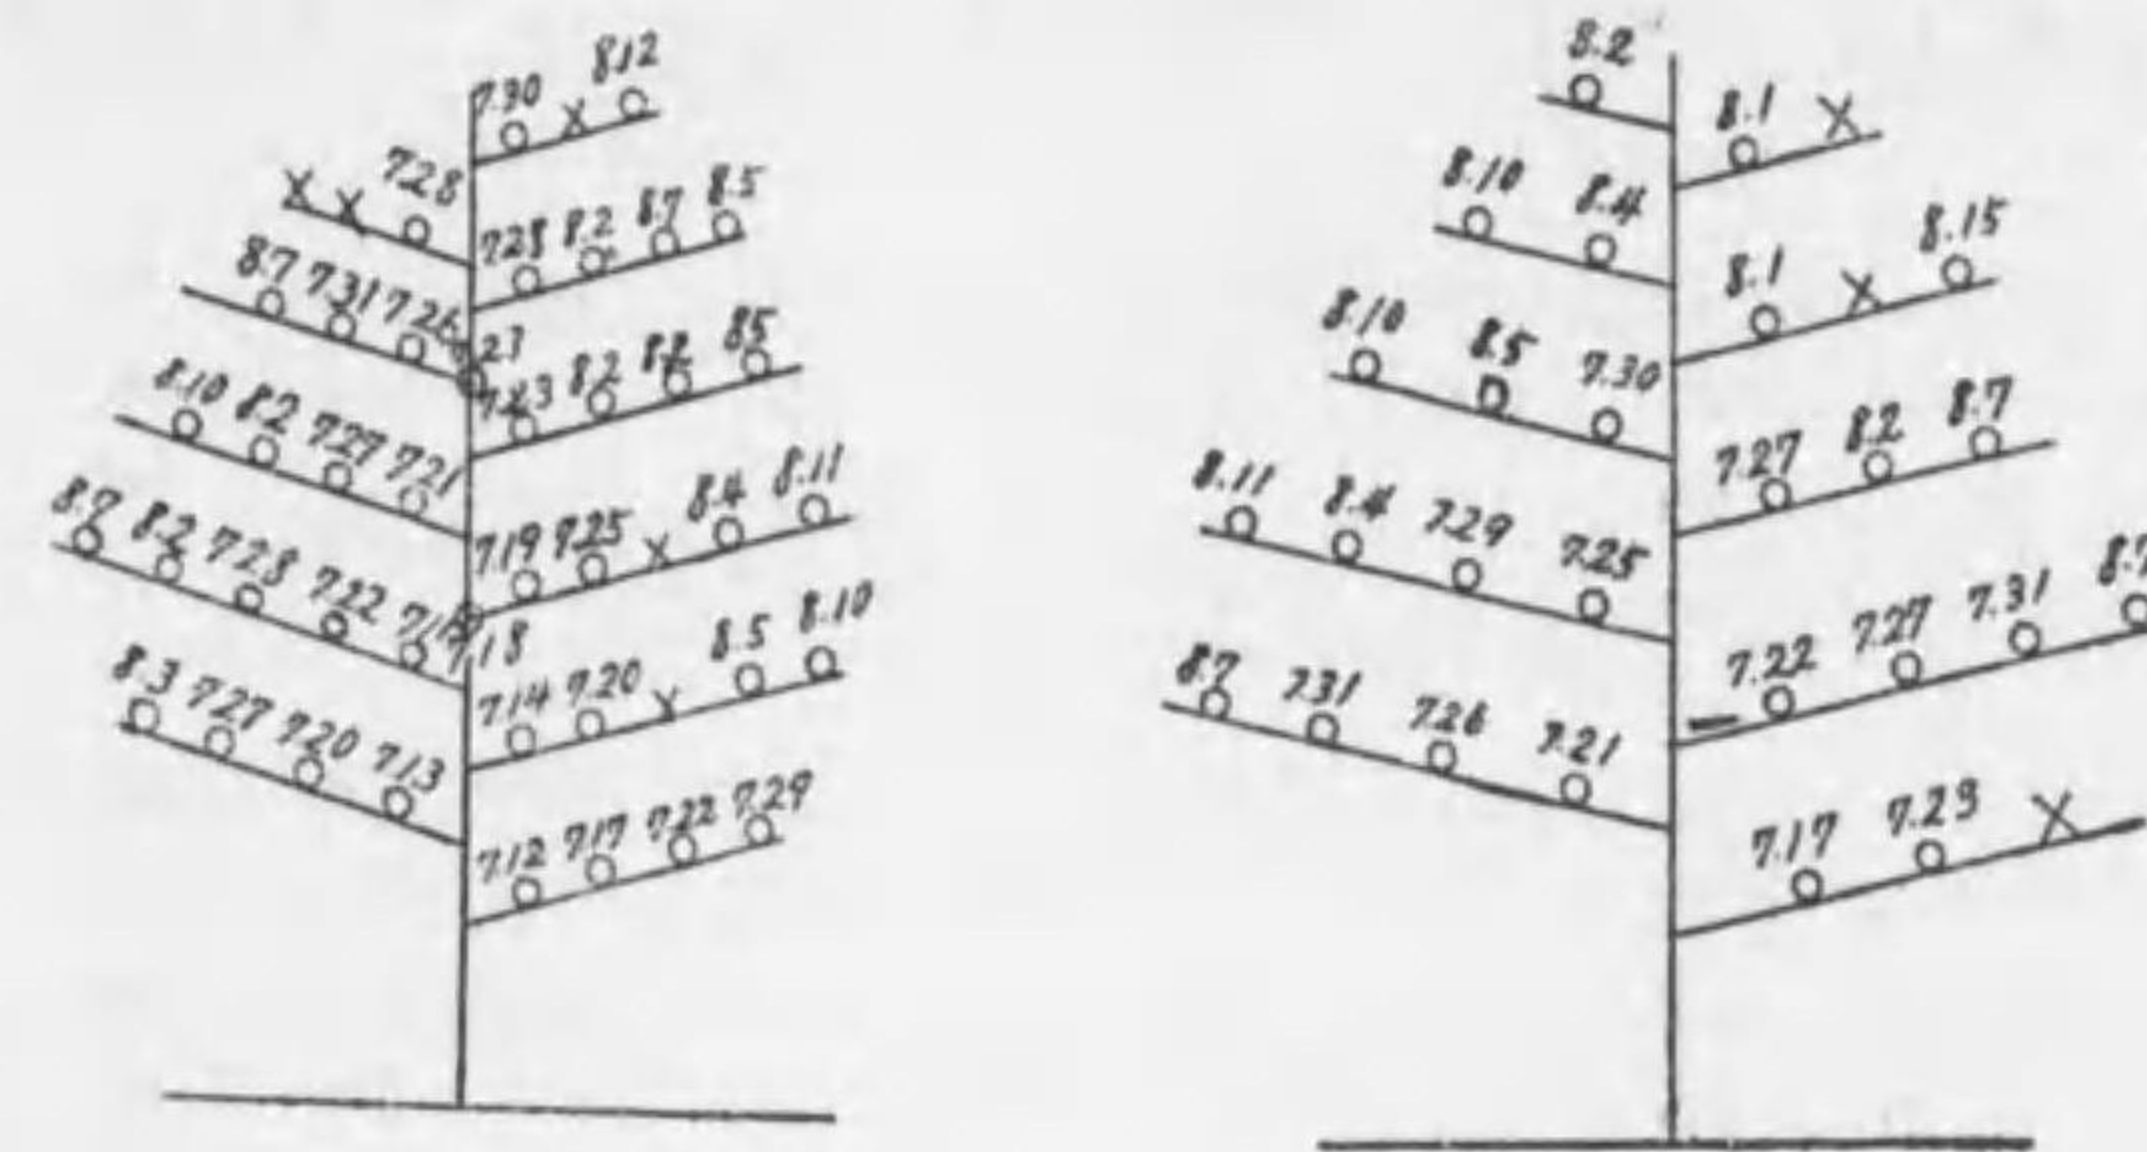 7.30 × 8.12
× × 7.28
7.28 8.2 8.7 8.5
8.7 7.31 7.26
8.2 8.2 8.5
8.10 8.2 7.27 7.21
7.19 7.25 × 8.4 8.11
8.7 8.2 7.28 7.22
7.18
7.14 7.20 × 8.5 8.10
8.3 7.27 7.20 7.13
7.12 7.17 7.22 7.29
8.2
8.1 ×
8.10 8.4
8.1 × 8.15
8.10 8.5 7.30
7.27 8.2 8.7
8.11 8.4 7.29 7.25
7.22 7.27 7.31 8.7
8.7 7.31 7.26 7.21
7.17 7.23 ×